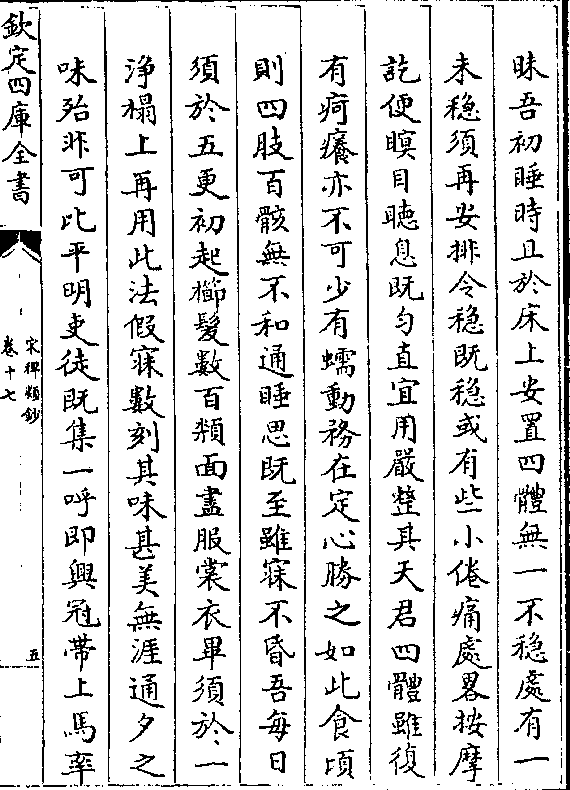 昧吾初睡時且於床上安置四體無一不穏處有一
未穏須再安排令穏既穏或有些小倦痛處畧按摩
訖便瞑目聴息既匀直宜用嚴整其天君四體雖復
有疴癢亦不可少有蠕動務在定心勝之如此食頃
則四肢百骸無不和通睡思既至雖寐不昏吾每日
須於五更初起櫛髮數百頮面盡服裳衣畢須於一
浄榻上再用此法假寐數刻其味甚美無涯通夕之
味殆非可比平明吏徒既集一呼即興冠帶上馬率
欽定四庫全書
宋稗類鈔
卷十七
五